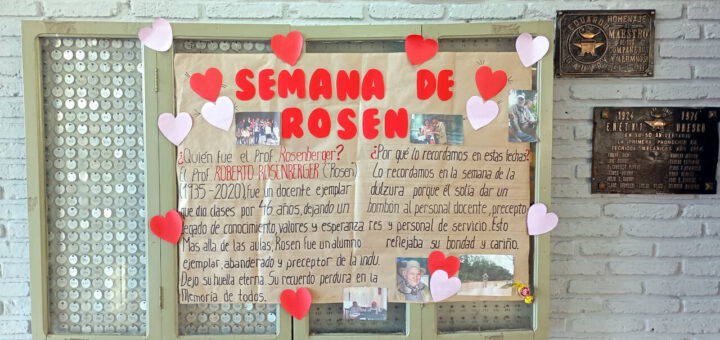 SEMANA DE
ROSEN
¿Quién fue el Prof. Rosenberger?
El Prof. ROBERTO ROSENBERGER (Rosen)
(1935-2020), fue un docente ejemplar
que dio clases por 46 años, dejando un
legado de conocimiento, valores y esperanza
Más allá de las aulas, Rosen fue un alumno
ejemplar, abanderado y preceptor de la indu.
Dejo su huella eterna. Su recuerdo perdura en la
Memoria de todos.
¿Por qué lo recordamos en estas fechas?
Lo recordamos en la semana de la
dulzura porque él solía dar un
bombón al personal docente, precepto
res y personal de servicio. Esto
reflejaba su bondad y cariño.
EDUARDO
HOMENAJE
AL
MAESTRO
DE SUS
COMPAÑEROS
Y ALUMNOS
1924 1974
E.N.E.T. Nº 1
EN SU 50 ANIVERSARIO
LA PRIMERA PROMOCION DE
TECNICOS MECANICOS